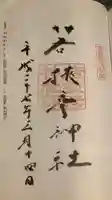 若狭彦神社
平成二十七年三月十四日